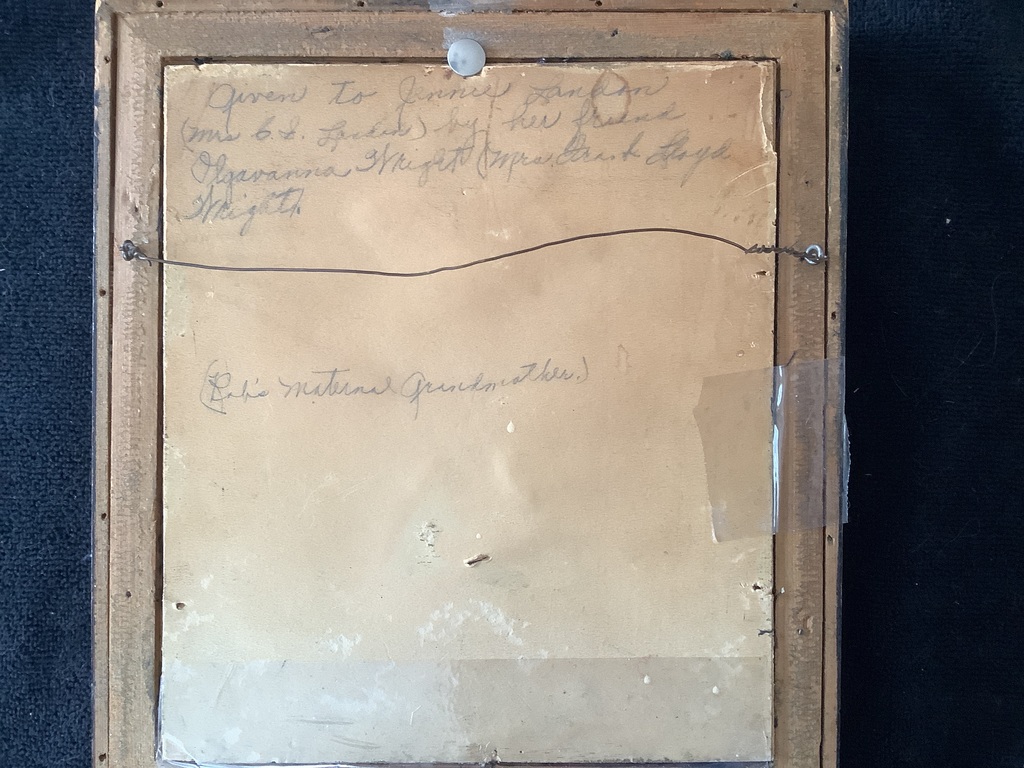 Given to Jennie Landon
(Mrs C. S. Landon) by her friend ...
Olgavanna Wright (Mrs. Frank Lloyd
Wright).
(Rob's Maternal Grandmother.)